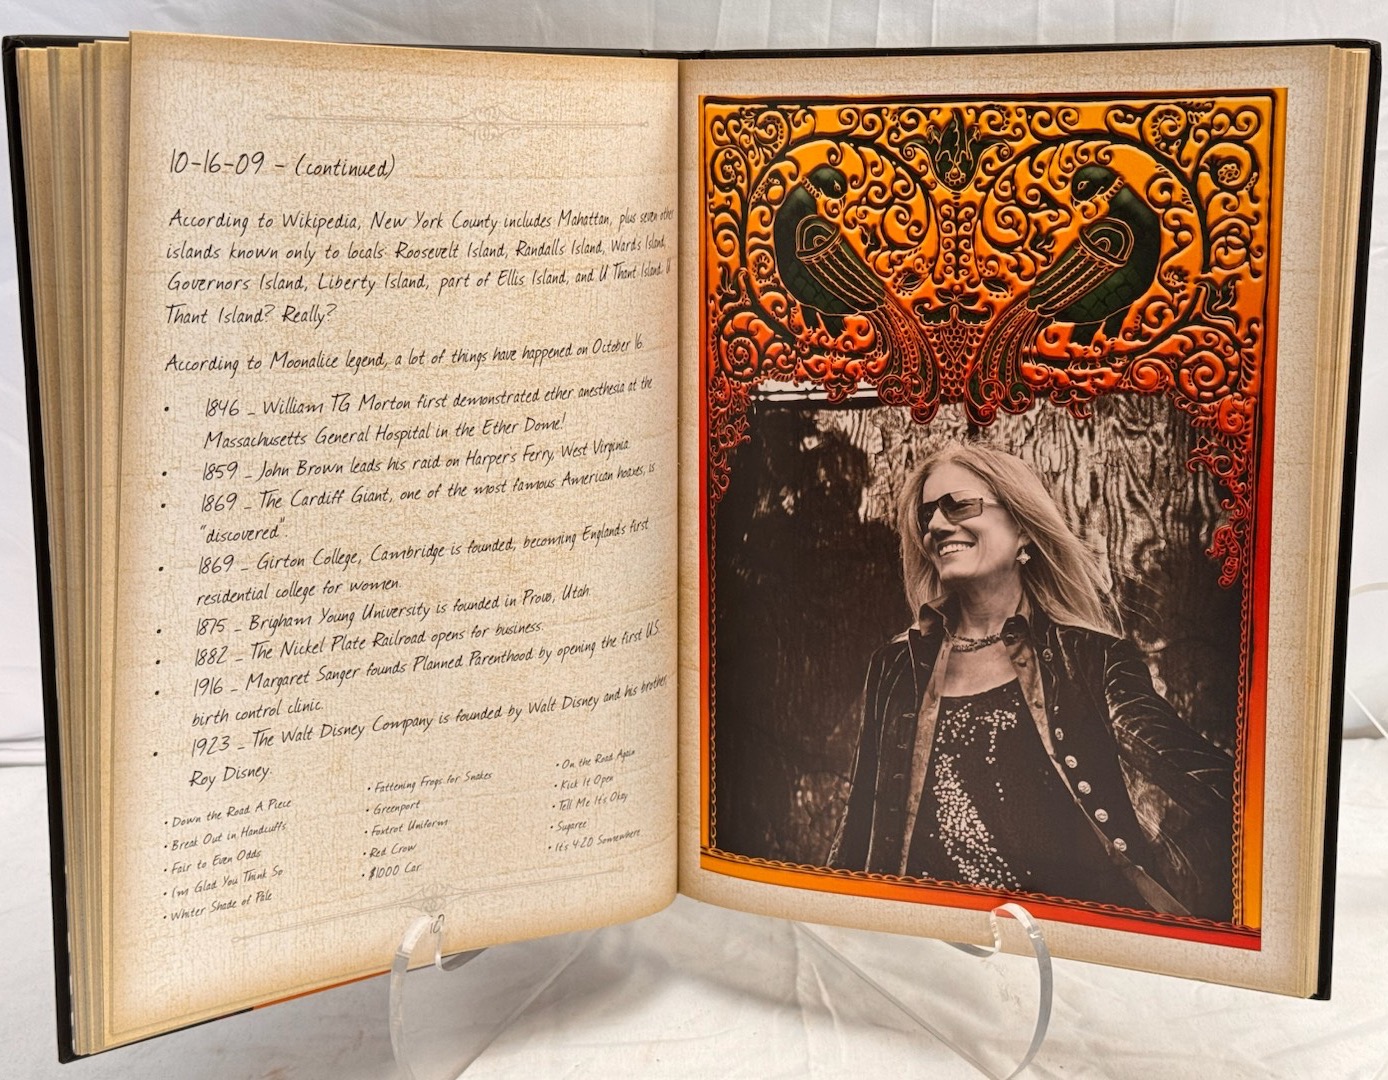 10-16-09 - (continued)
According to Wikipedia, New York County includes Mahattan, plus seven other
islands known only to locals: Roosevelt Island, Randalls Island, Wards Island,
Governors Island, Liberty Island, part of Ellis Island, and U Thant Island. U
Thant Island? Really?
According to Moonalice legend, a lot of things have happened on October 16.
• 1846 - William TG Morton first demonstrated ether anesthesia at the
Massachusetts General Hospital in the Ether Dome!
• 1859 - John Brown leads his raid on Harpers Ferry, West Virginia.
• 1869 - The Cardiff Giant, one of the most famous American hoaxes, is
"discovered".
• 1869 - Girton College, Cambridge is founded, becoming Englands first
residential college for women.
• 1875 - Brigham Young University is founded in Provo, Utah.
• 1882 - The Nickel Plate Railroad opens for business.
• 1916 - Margaret Sanger founds Planned Parenthood by opening the first U.S.
birth control clinic.
• 1923 - The Walt Disney Company is founded by Walt Disney and his brother,
Roy Disney.
• Down the Road A Piece
• Break Out in Handcuffs
• Fair to Even Odds
• I'm Glad You Think So
• Whiter Shade of Pale
• Fattening Frogs for Snakes
• Greenport
• Foxtrot Uniform
• Red Crow
• $1000 Car
• On the Road Again
• Kick It Open
• Tell Me It's Okay
• Sugaree
• It's 4:20 Somewhere